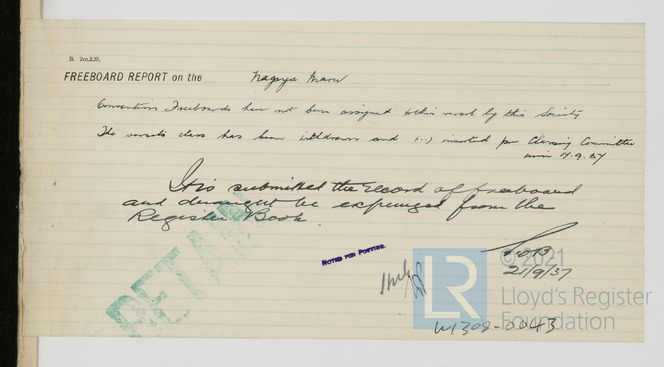 B. 2m.2.36.
FREEBOARD REPORT on the Nagoya Maru
Convention Freeboards have not been assigned to this vessel by this Society
The vessels class has been withdrawn and (...) inserted per Classing Committee
mins 17.9.37
It is submitted the record of freeboard
and might be expunged from the
Register Book
RETAIN
NOTED FOR POSTING.
21/9/37
© 2021
LR
Lloyd's Register
Foundation
W1308-0043